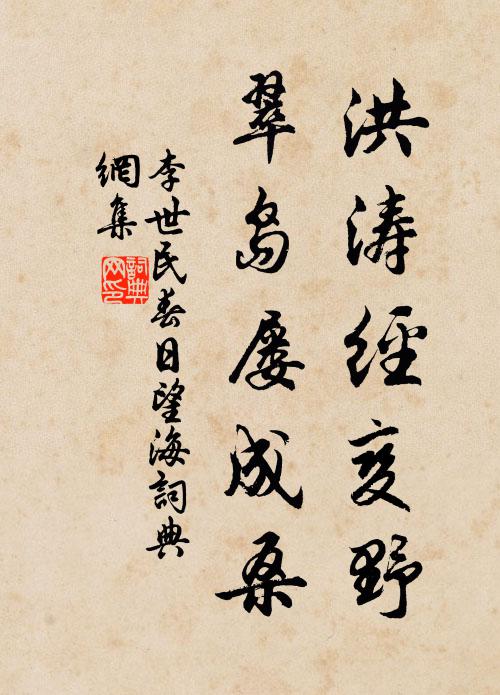 洪涛經变野
翠岛屡成桑
李世民春日望海詞典
網集
詞典网印